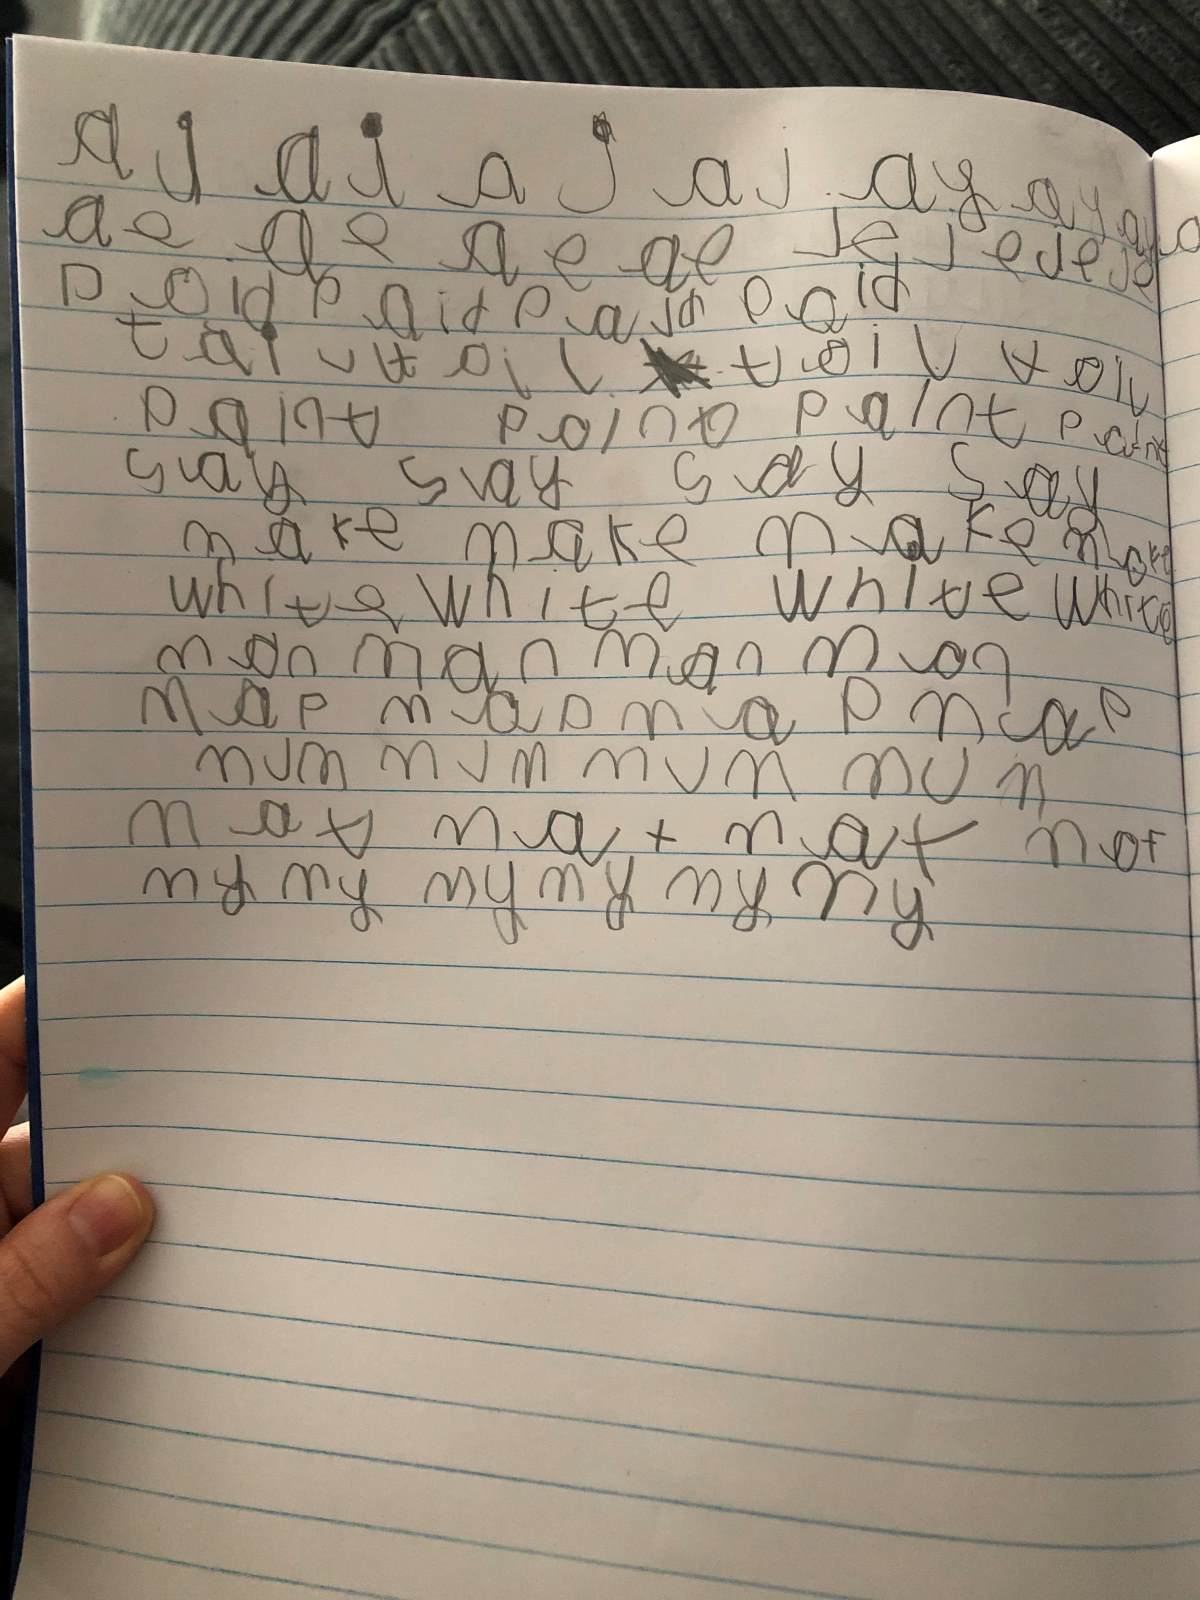 ai ai ai ai ay ay ay
ae ae ae ae ie ie ie ie
paid paid paid paid
tail tail tail tail
paint paint paint paint
say say say say
make make make make
white white white white
man man man man
map map map map
mum mum mum mum
mat mat mat mat
my my my my my my